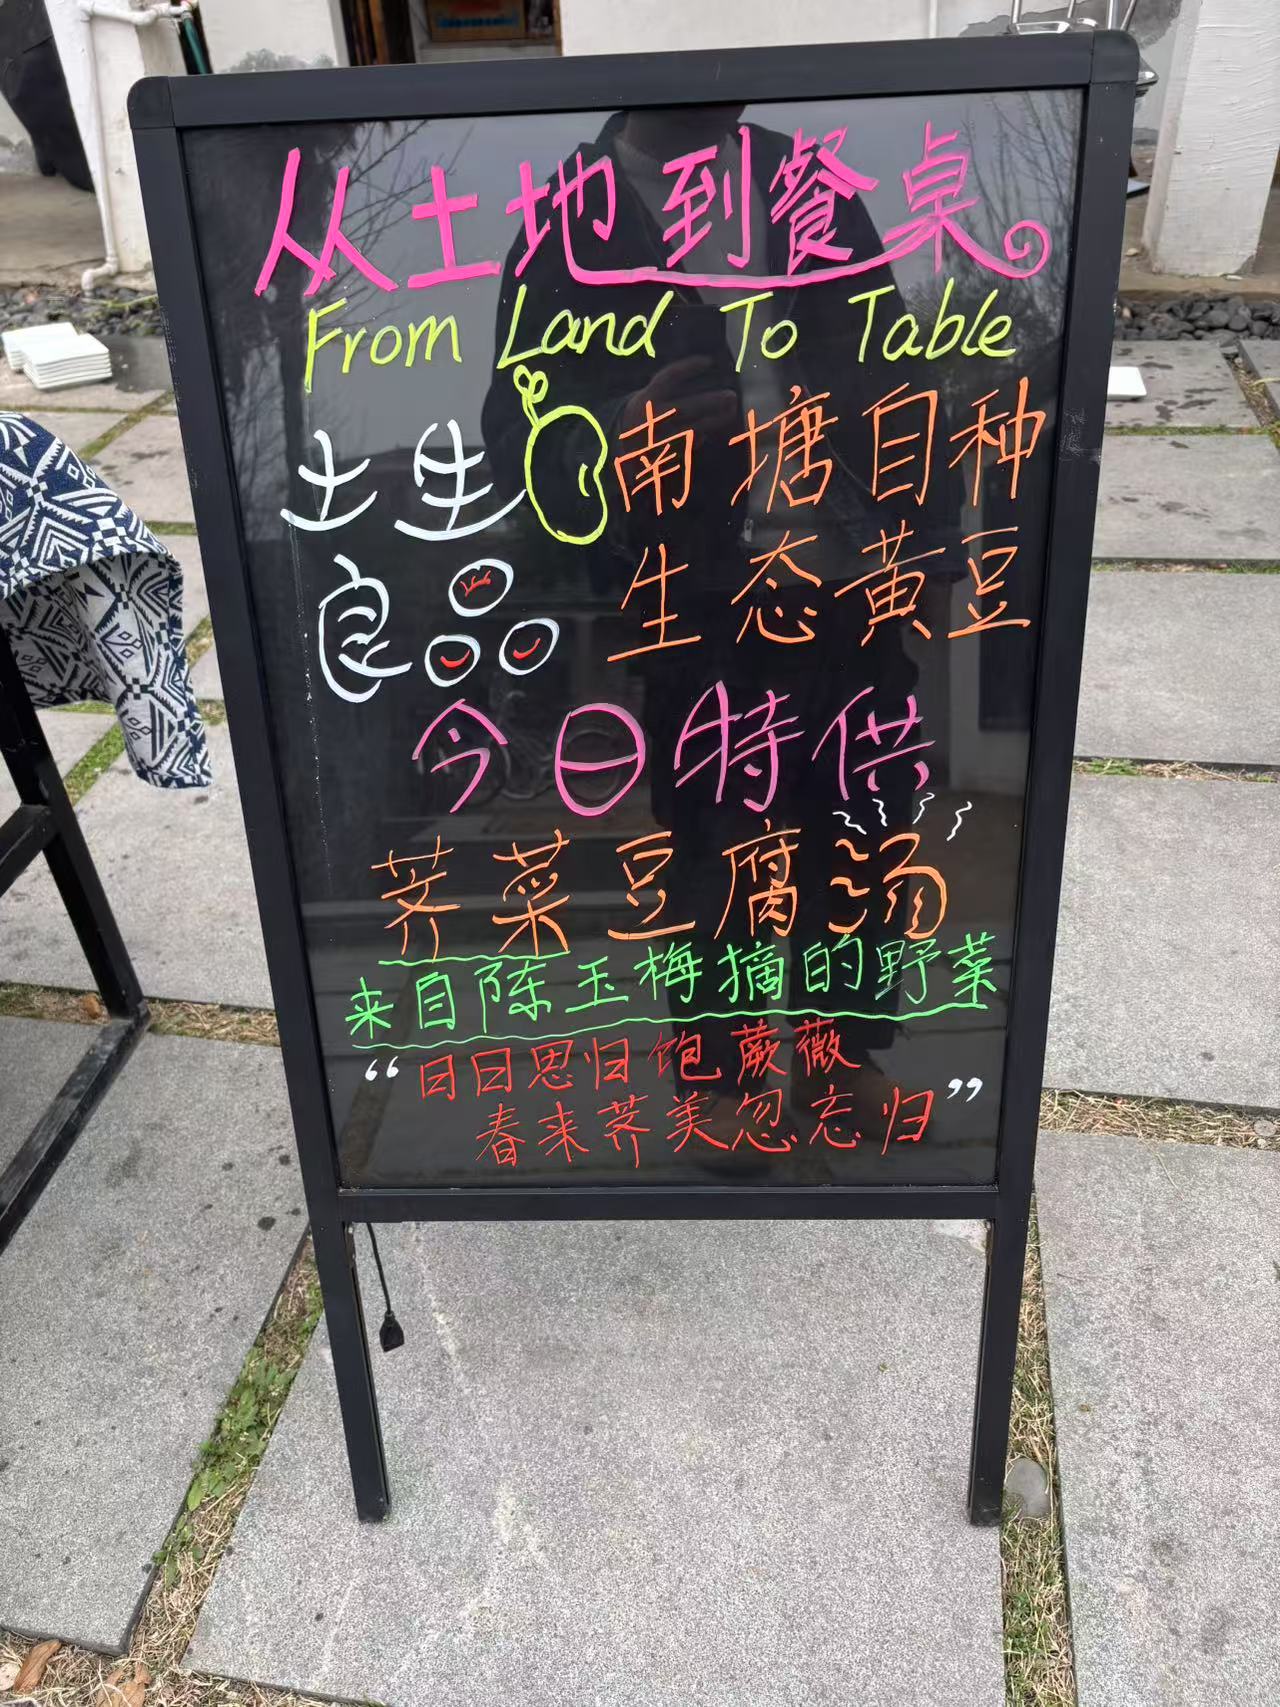 从土地到餐桌
From Land To Table
土生
良品
南塘自种
生态黄豆
今日特供
荠菜豆腐汤
来自陈玉梅摘的野菜
“日日思归饱蕨薇
春来荠美忽忘归”